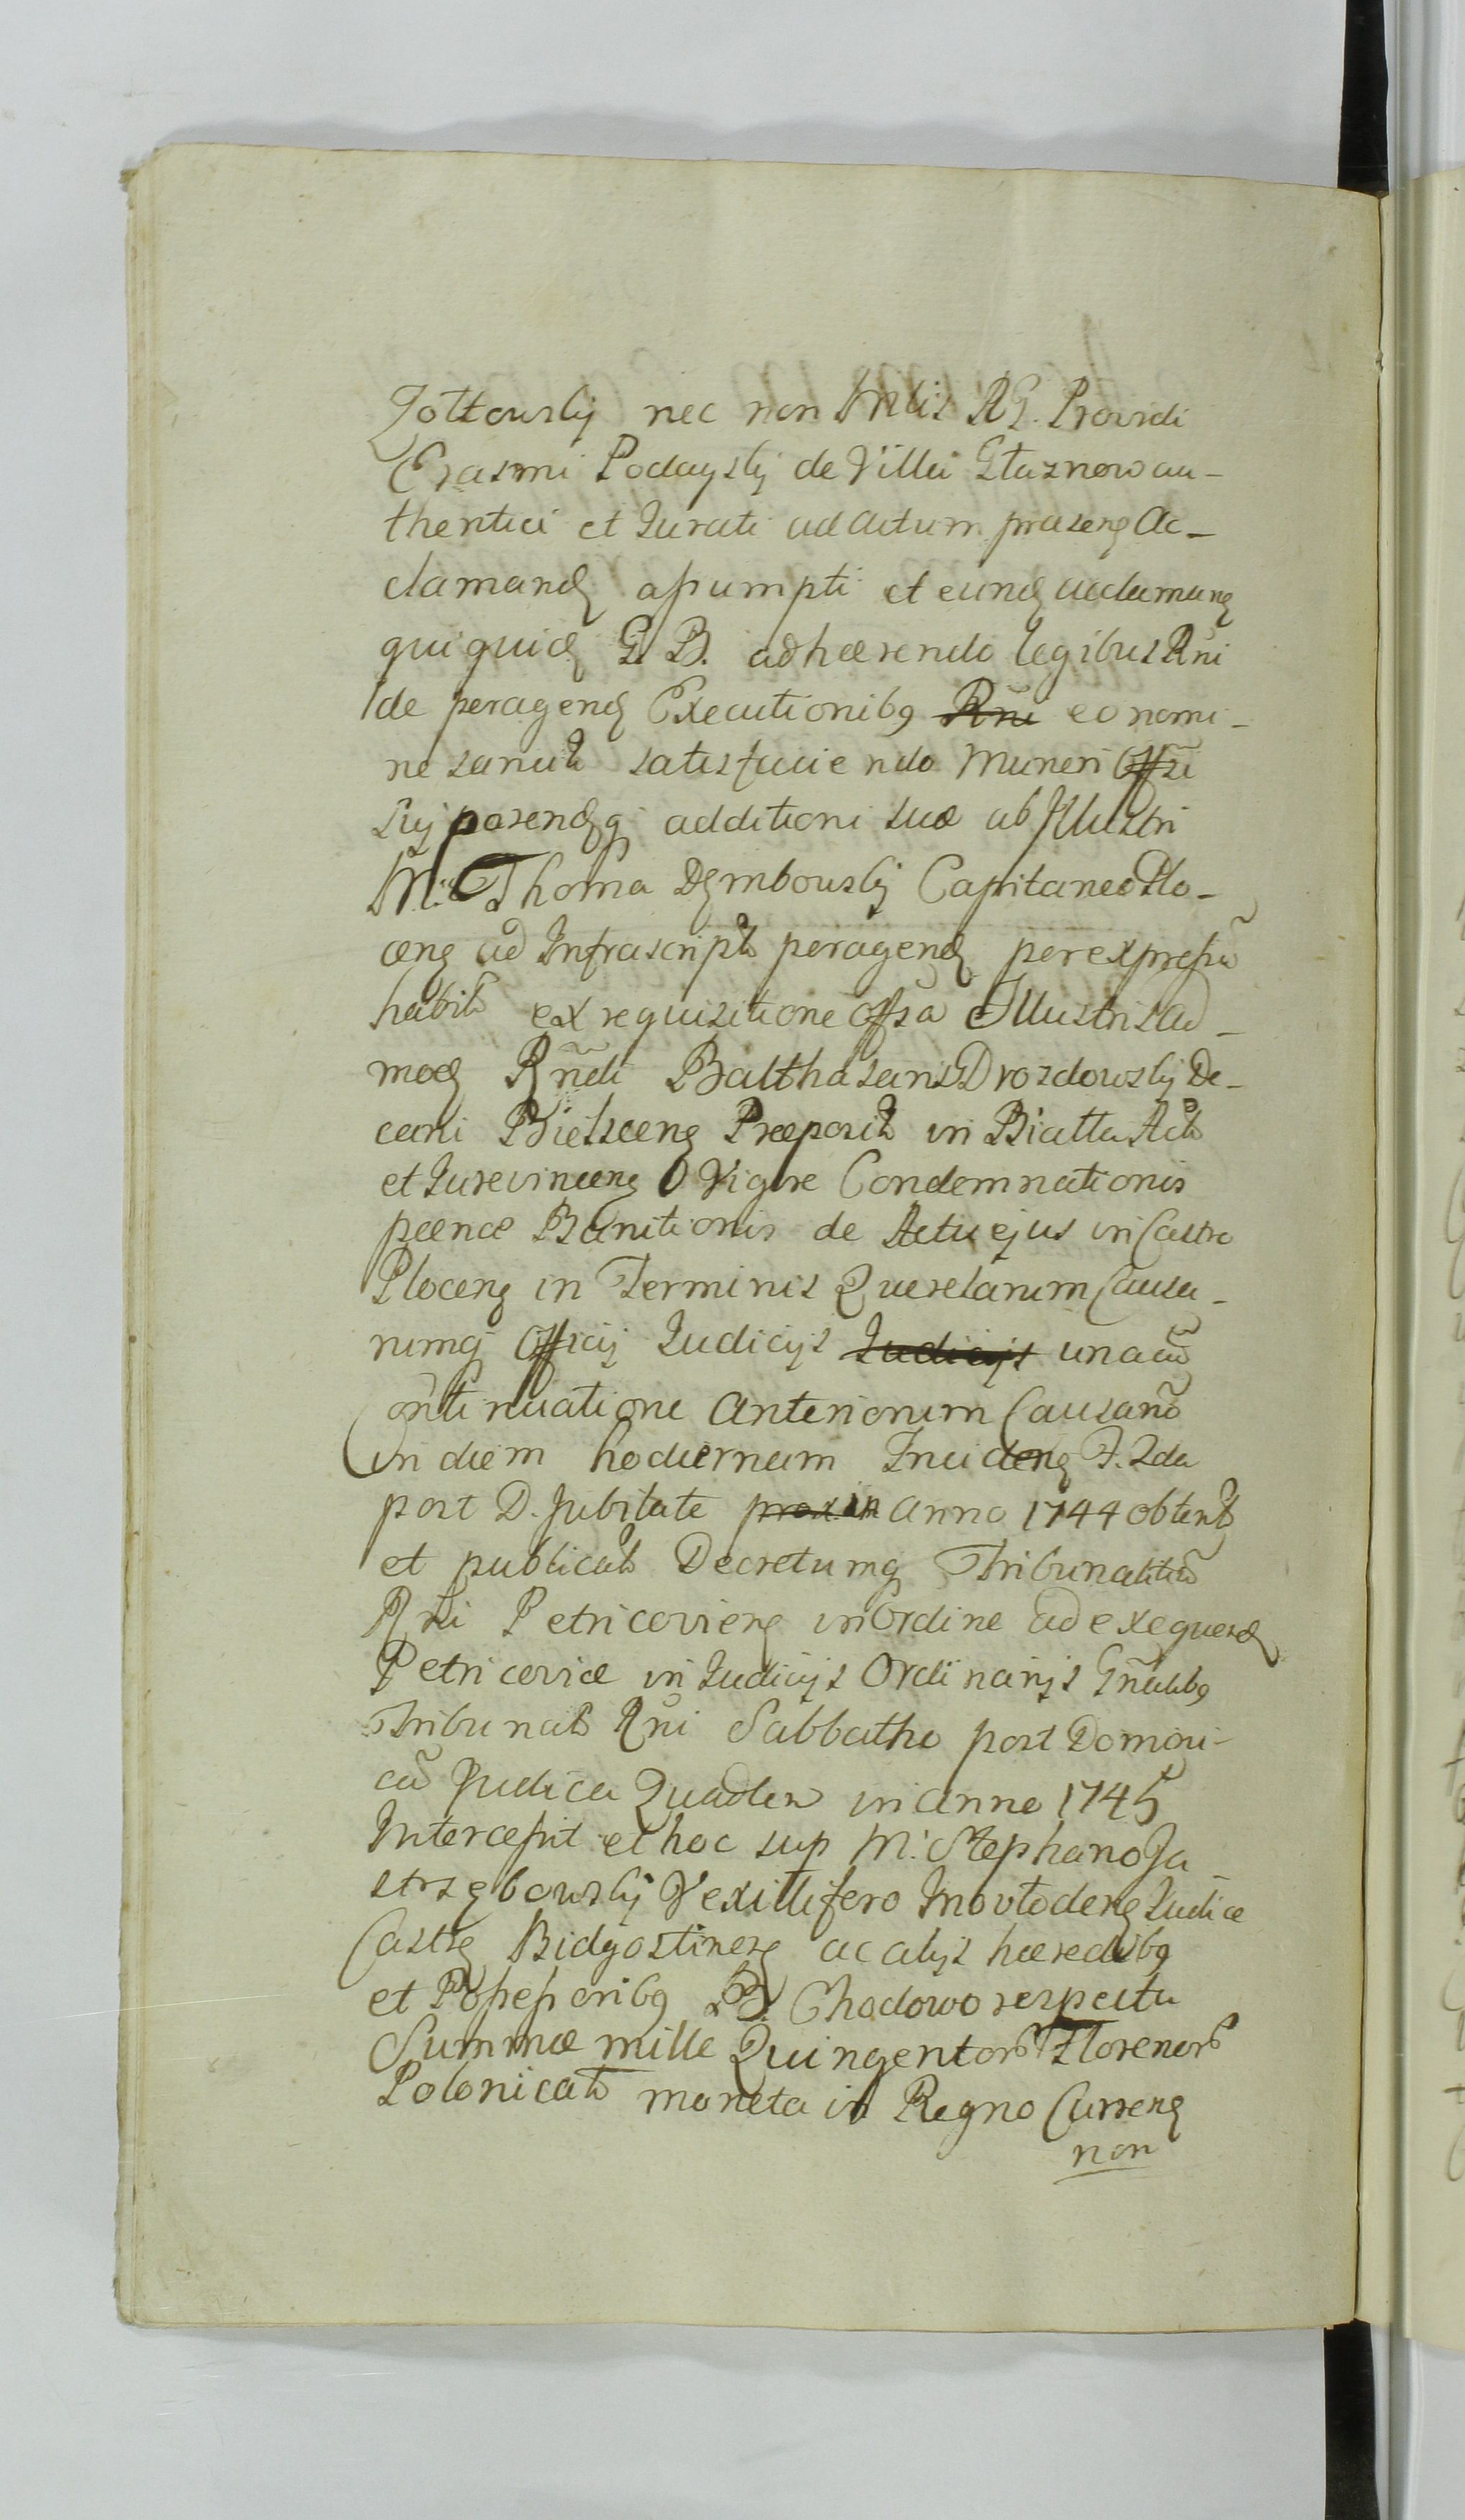 Zołtowskij nec non Mlis RG. Providi
Erasmi Podayskij de Villa Głaznow au-
thentici et Jurati ad Actum præsenꝫ Ac-
clamandꝫ assumpti et eundꝫ acclamanꝫ
quiquidꝫ G B. adhærendo legibus Rñi
de peragendꝫ Executionibꝫ ~~Rñi~~ eo nomi-
ne sancitꝫ satisfaciendo Muneri Offsi
sui parendꝫqꝫ additioni suæ ab Illustri
M. Thoma Dęmbowskij Capitaneo Plo-
cenꝫ ad Infrascriptꝫ peragendꝫ per expressũ
habitꝫ ex requisitione Offsa Illustris ad-
modꝫ Rñdi Balthasaris Drozdowskij De-
cani Bielscenꝫ Præpositꝫ in Białła Actꝫ
et Jurevincenꝫ Vigore Condemnationis
pœnæ Banitionis de Actu ejus in Castro
Plocenꝫ in Terminis Querelarum Causa-
rumqꝫ Officij Judicijs ~~Judicijs~~ una cũ
Contĩnuatione Anteriorum Causarũ
in diem hodiernam Incidenꝫ F. 2da
post D. Jubilate ~~proxim~~ Anno 1744 obtentꝫ
et publicatꝫ Decretumqꝫ Tribunalitiũ
Rñi Petricovienꝫ in Ordine ad exequendꝫ
Petricoviæ in Judicijs Ordinarijs Gñalibꝫ
Tribunalꝫ Rñi Sabbatho post Domini-
cã Judica Quadlem in Anno 1745
Intercessit et hoc sup M. Stephano Ja-
strzębowskij Vexillifero Inovłodenꝫ Judice
Castrꝫ Bidgostinenꝫ ac alijs hæredibꝫ
et Possessoribꝫ B. Chodowo respectu
Summæ mille Quingentorꝫ Florenorꝫ
Polonicalꝫ moneta in Regno Currenꝫ
non